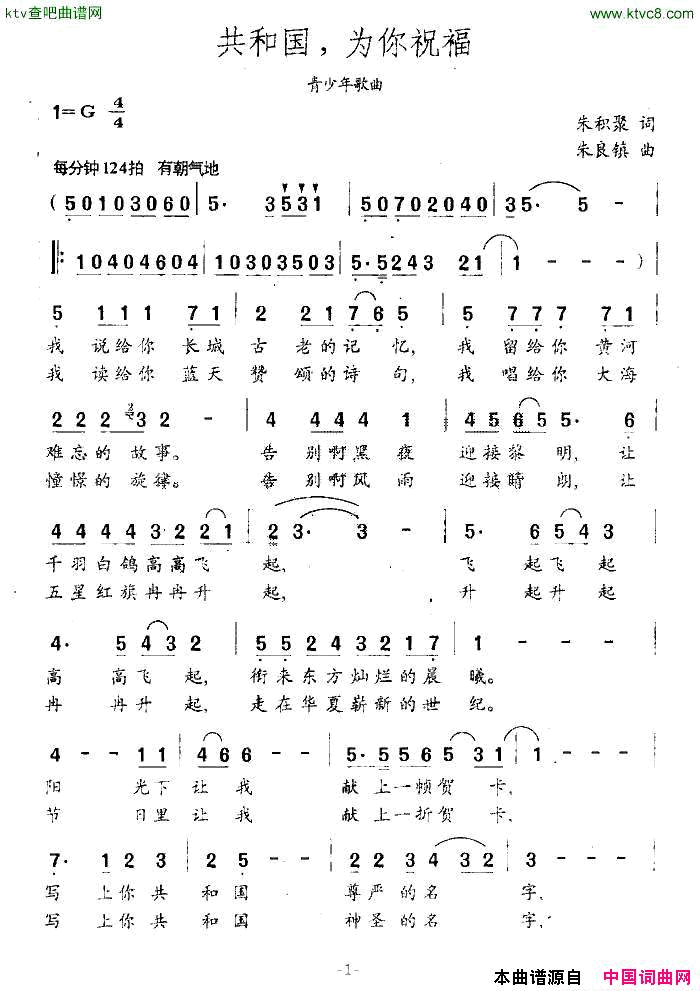 ktv查吧曲谱网
www.ktvc8.com
共和国，为你祝福
青少年歌曲
1=G 4/4
朱积聚 词
朱良镇 曲
每分钟124拍 有朝气地
( 50103060 | 5· 3531 | 50702040 | 35· 5 - |
‖: 10404604 | 10303503 | 5·5243 21 | 1 - - - )
5 111 71 | 2 2176 5 | 5 777 71 |
我 说给你 长城 古 老的记 忆, 我 留给你 黄河
我 读给你 蓝天 赞 颂的诗 句, 我 唱给你 大海
222 32 2 - | 4 444 1 | 4565 5· 6 |
难忘的 故事。 告 别啊黑 夜 迎接黎 明, 让
憧憬的 旋律。 告 别啊风 雨 迎接晴 朗, 让
4444 3 2 2 21 | 2 3· 3 - | 5· 6543 |
千羽白鸽高高飞 起, 飞 起飞起
五星红旗冉冉升 起, 升 起升起
4· 5432 | 55243217 | 1 - - - |
高 高飞 起, 衔来东方灿烂的晨 曦。
冉 冉升 起, 走在华夏崭新的世 纪。
4 - - 11 | 1466 - - | 5·556531 | 1 - - - |
阳 光下让 我 献 上一帧贺 卡,
节 日里让 我 献 上一折贺 卡,
7· 123 | 25 - - | 3·223432 | 3 - - - |
写 上你共 和国 尊 严的名 字,
写 上你共 和国 神 圣的名 字,
-1-
本曲谱源自 中国词曲网